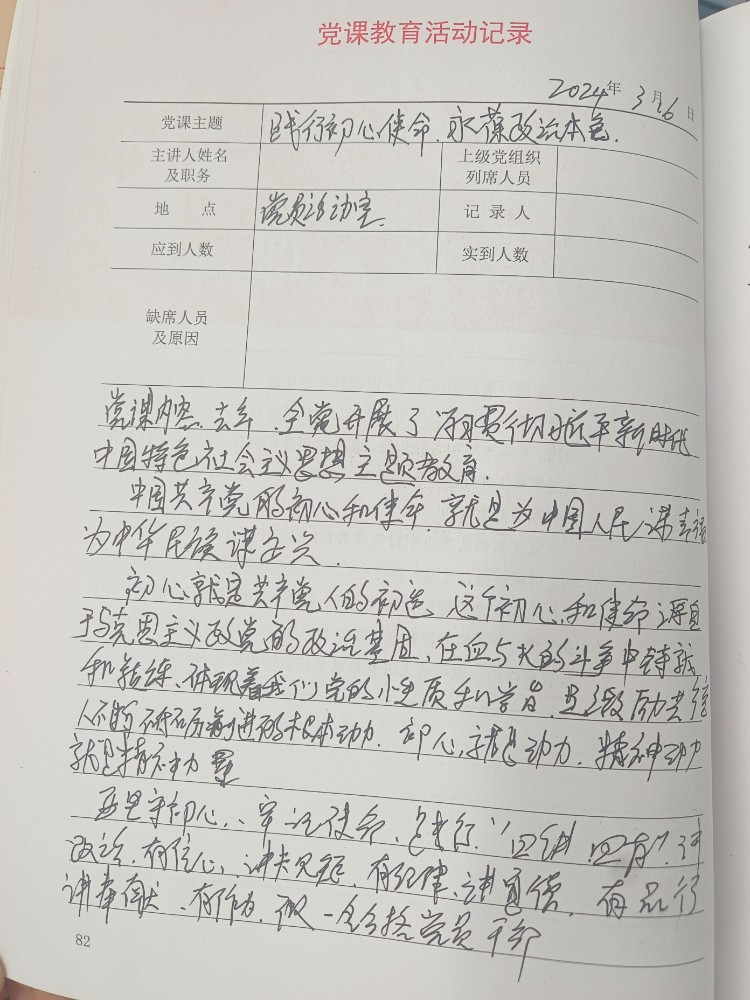 党课教育活动记录
2024年3月6日
党课主题 践行初心使命.永葆政治本色.
主讲人姓名及职务 上级党组织列席人员
地 点 党员活动室. 记录人
应到人数 实到人数
缺席人员及原因
党课内容.去年.全党开展了 习近平新时代
中国特色社会主义思想主题教育.
中国共产党的初心和使命.就是为中国人民谋幸福
为中华民族谋复兴.
初心就是共产党人的初 .这个初心和使命源自
于马克思主义政党的政治基因.在血与火的斗争中铸就
和 练.体现着我们党的 质和 .是激励共产党
人不断 前进的根本动力.初心.就是动力.精神动力
就是精神力量
要坚守初心、牢记使命. "四讲.四有".讲
政治.有信心、讲规矩.有纪律、讲道德.有品行
讲奉献、有作为.做一名合格党员干部
82